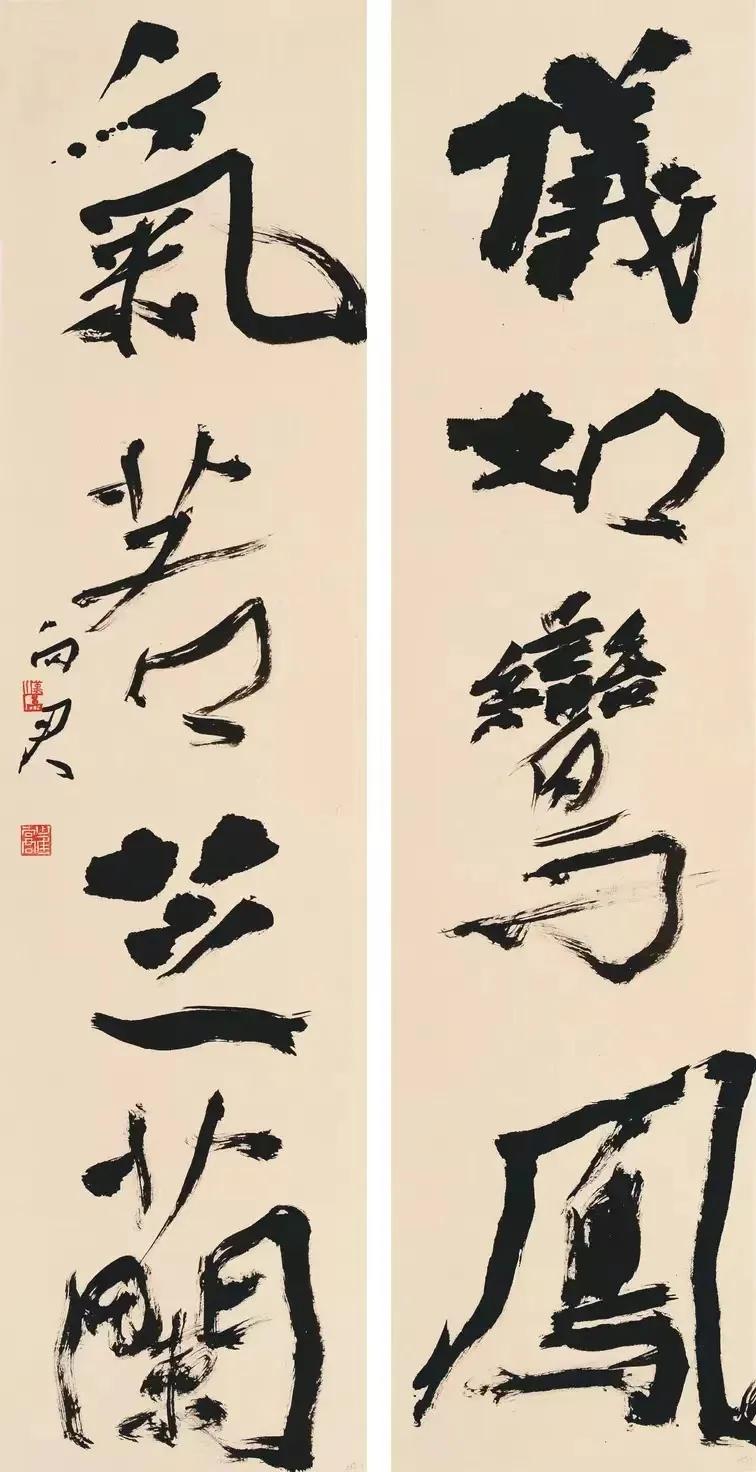 儀如鸞鳳
氣若芝蘭